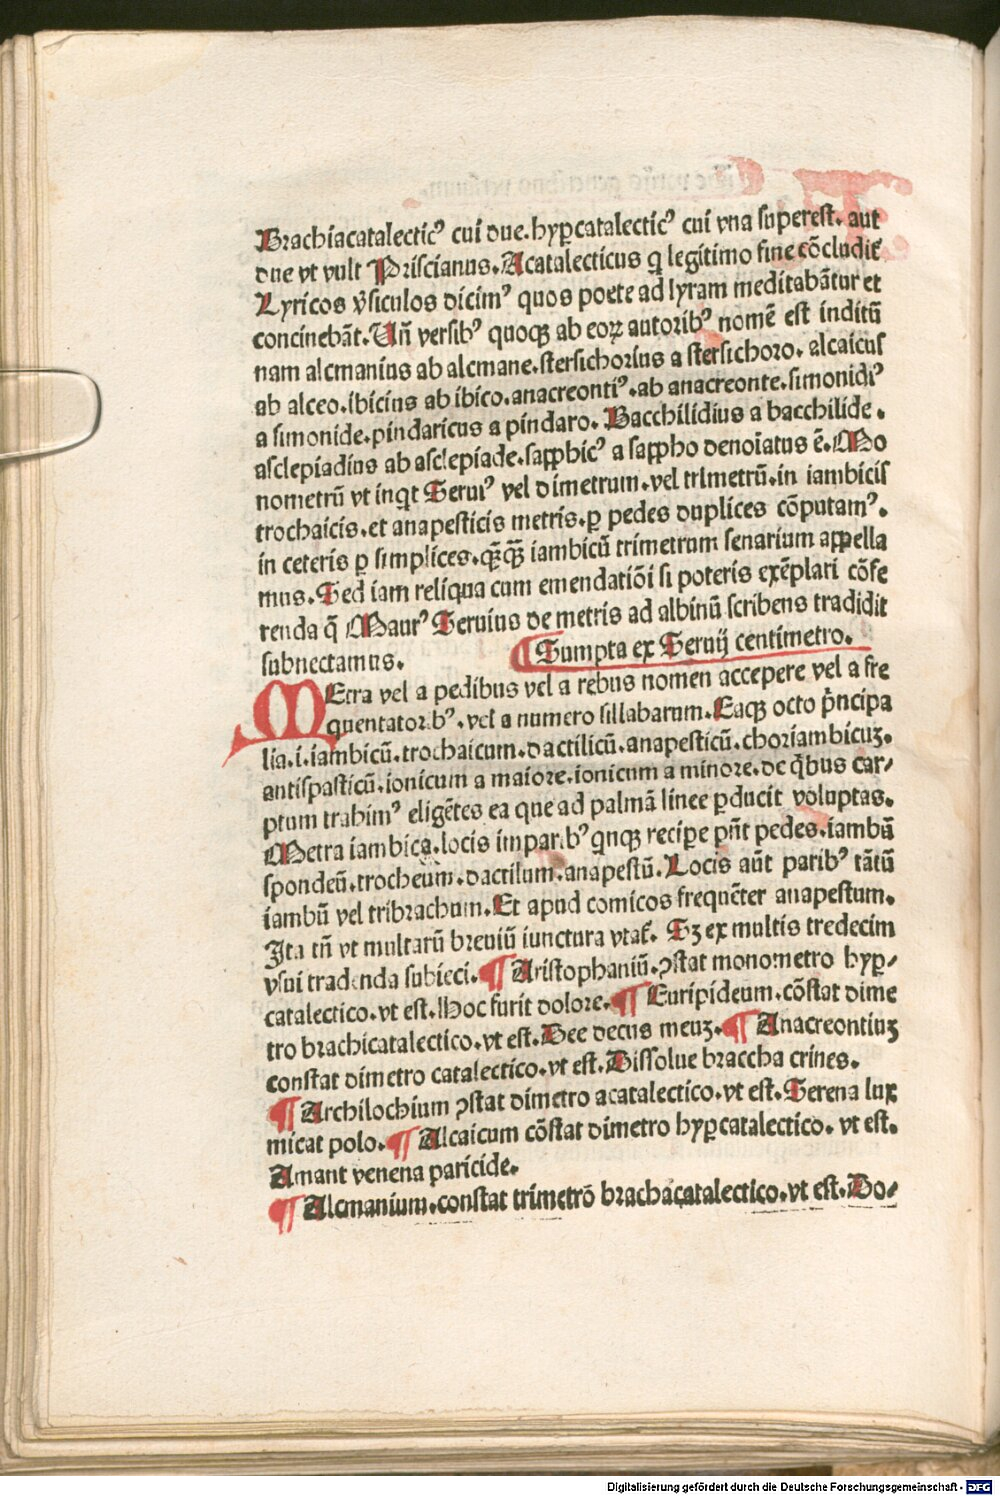 Brachiacatalecticꝰ cui due. hyꝑcatalecticꝰ cui vna superest. aut
due vt vult Priscianus. Acatalecticus q̄ legitimo fine cōcludit᷑
Lyricos v̄siculos dicimꝰ quos poete ad lyram meditabātur et
concinebāt. Un̄ versibꝰ quoqꝫ ab eoꝝ autoribꝰ nomē est inditū
nam alcmanius ab alcmane. stersichorius a stersichoro. alcaicus
ab alceo. ibicius ab ibico. anacreontiꝰ. ab anacreonte. simonidiꝰ
a simonide. pindaricus a pindaro. Bacchilidius a bacchilide.
asclepiadius ab asclepiade. sapphicꝰ a sappho denoīatus ē. Mo
nometrū vt inqt Seruiꝰ vel dimetrum. vel trimetrū. in iambicis
trochaicis. et anapesticis metris. ꝑ pedes duplices cōputamꝰ.
in ceteris ꝑ simplices. qꝫqꝫ iambicū trimetrum senarium appella
mus. Sed iam reliqua cum emendatiōi si poteris exēplari cōfe
renda q̄ Maurꝰ Seruius de metris ad albinū scribens tradidit
subnectamus. ¶ Sumpta ex Seruij centimetro.
MEtra vel a pedibus vel a rebus nomen accepere vel a fre
quentatoribꝰ. vel a numero sillabarum. Eaqꝫ octo p̄ncipa
lia. i. iambicū. trochaicum. dactilicū. anapesticū. choriambicuꝫ.
antispasticū. ionicum a maiore. ionicum a minore. de q̄bus car/
ptum trahimꝰ eligētes ea que ad palmā linee ꝑducit voluptas.
Metra iambica. locis imparibꝰ qnqꝫ recipe pn̄t pedes. iambū
spondeū. trocheum. dactilum. anapestū. Locis aūt paribꝰ tātū
iambū vel tribrachum. Et apud comicos frequēter anapestum.
Ita tn̄ vt multarū breuiū iunctura vtat᷑. Sꝫ ex multis tredecim
vsui tradenda subieci. ¶ Aristophaniū. ꝯstat monometro hyꝑ/
catalectico. vt est. Hoc furit dolore. ¶ Euripideum. cōstat dime
tro brachicatalectico. vt est. Hee decus meuꝫ. ¶ Anacreontiuꝫ
constat dimetro catalectico. vt est. Dissolue braccha crines.
¶ Archilochium ꝯstat dimetro acatalectico. vt est. Serena lux
micat polo. ¶ Alcaicum cōstat dimetro hyꝑcatalectico. vt est.
Amant venena paricide.
¶ Alcmanium. constat trimetrō brachacatalectico. vt est. Do/
Digitalisierung gefördert durch die Deutsche Forschungsgemeinschaft - DFG